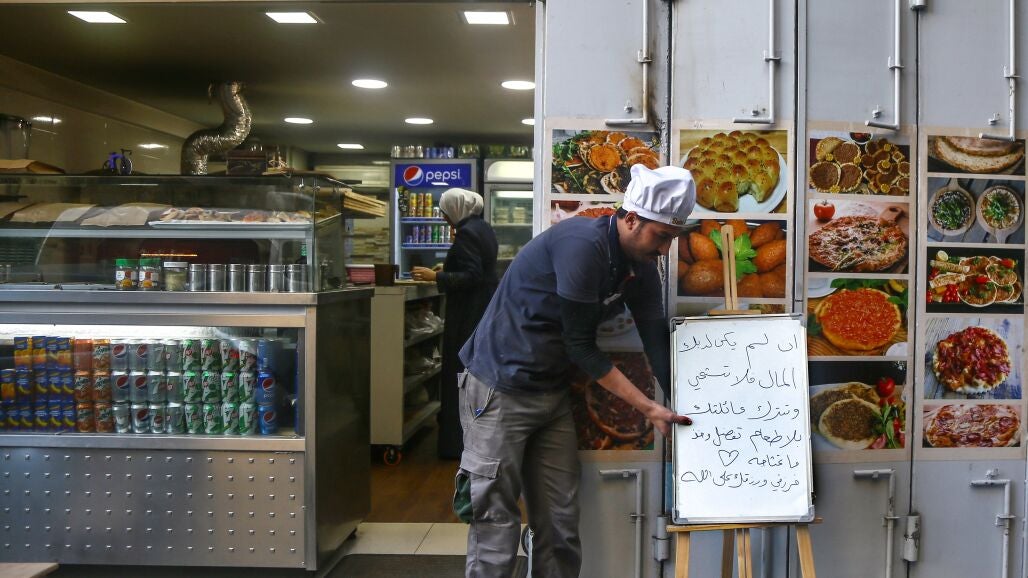 pepsi
ان لم يكن لديك
المال فلا تستحي
وتترك عائلتك
بلا طعام تفضل وخذ
ما تحتاجه ♡
ورزقك على الله